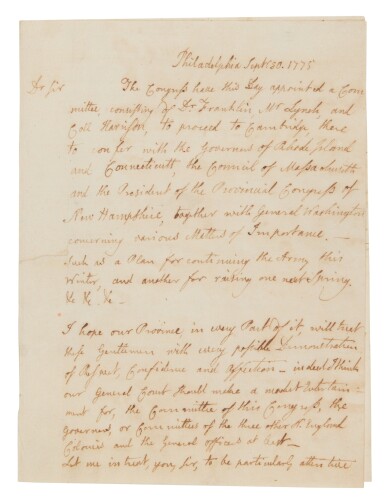 Philadelphia Septr. 30. 1775
Dr Sir
The Congress have this Day appointed a Com
mittee consisting of Dr. Franklin, Mr Lynch, and
Coll Harrison, to proceed to Cambridge, there
to confer with the Governors of Rhode Island
and Connecticutt, the Council of Massachusetts
and the President of the Provincial Congress of
New Hampshire, together with General Washington
concerning various Matters of Importance. —
Such as a Plan for continuing the Army this
Winter, and another for raising one next Spring.
&c &c &c —
I hope our Province in every Part of it, will treat
these Gentlemen with every possible Demonstration
of Respect, Confidence and Affection — indeed I think
our General Court should make a modest Entertain
ment for, the Committee of this Congress, the
Governors, or Committees of the three other N. England
Colonies and the General officers at least —
Let me intreat, you, Sir, to be particularly attentive